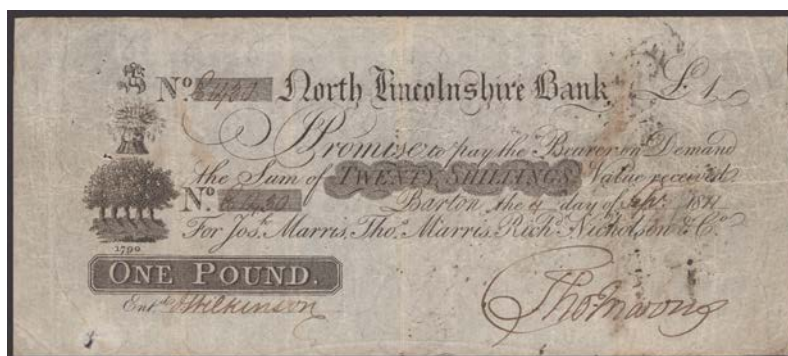 No. North Lincolnshire Bank £ 1
I Promise to pay the Bearer on Demand
the Sum of TWENTY SHILLINGS Value received.
No. Barton, the day of 1811
For Josh. Marris, Thos. Marris, Richd. Nicholson & Co.
1790
ONE POUND.
Entd. Wilkinson